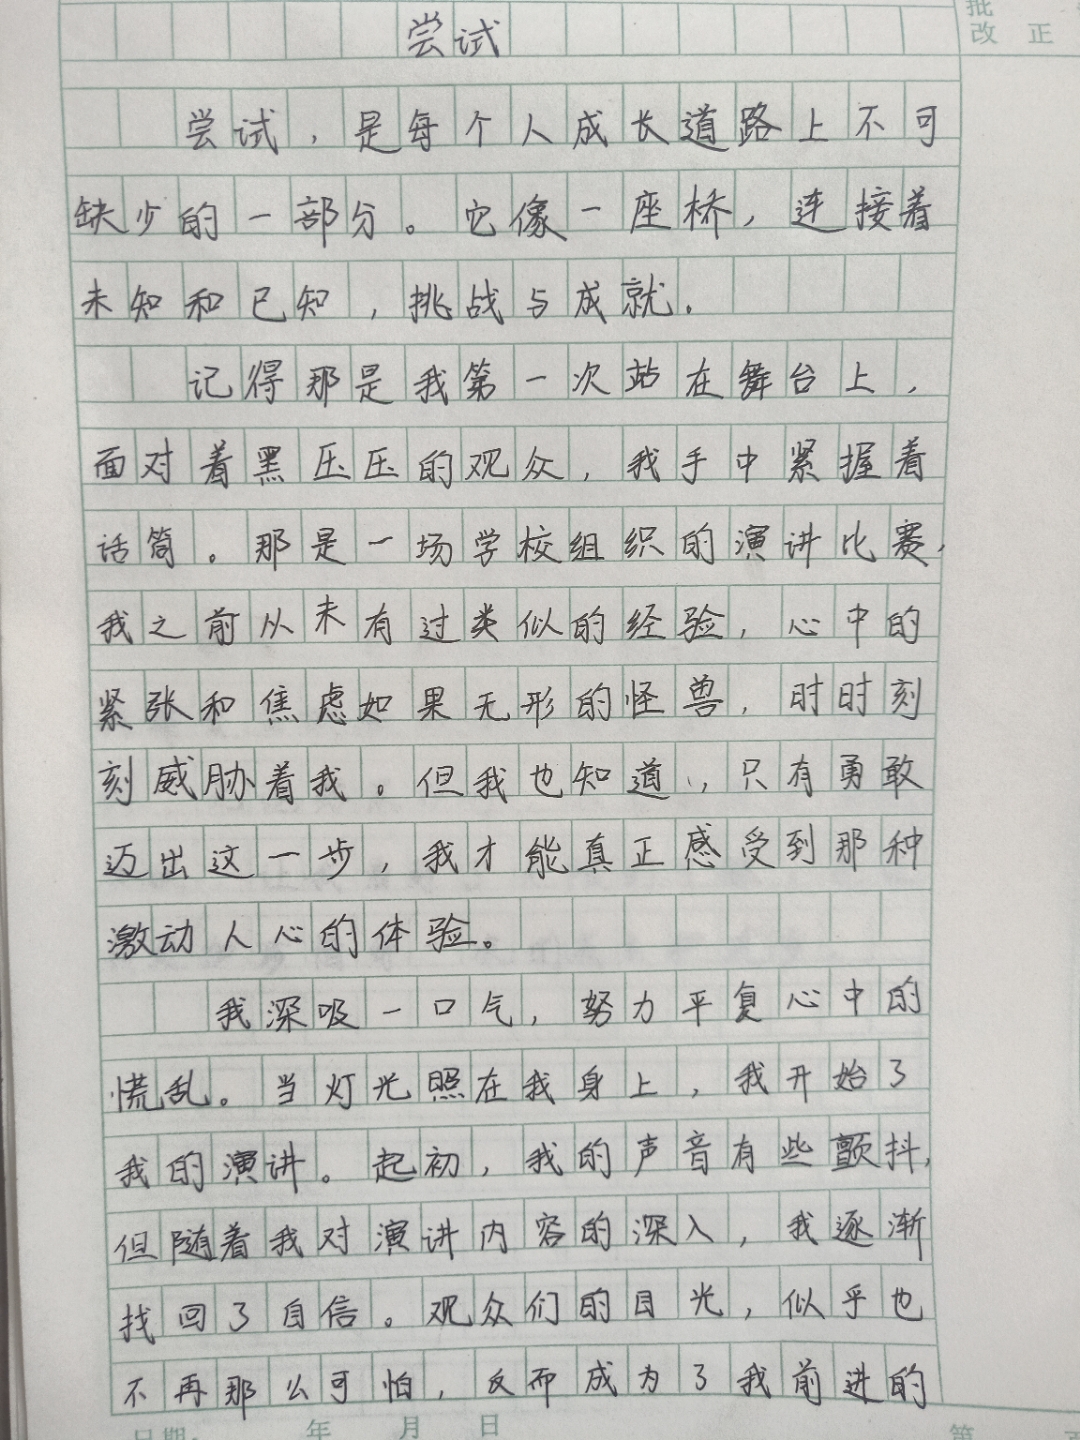 批
改 正
尝试
尝试，是每个人成长道路上不可
缺少的一部分。它像一座桥，连接着
未知和已知，挑战与成就.
记得那是我第一次站在舞台上，
面对着黑压压的观众，我手中紧握着
话筒。那是一场学校组织的演讲比赛，
我之前从未有过类似的经验，心中的
紧张和焦虑如果无形的怪兽，时时刻
刻威胁着我。但我也知道，只有勇敢
迈出这一步，我才能真正感受到那种
激动人心的体验。
我深吸一口气，努力平复心中的
慌乱。当灯光照在我身上，我开始了
我的演讲。起初，我的声音有些颤抖，
但随着我对演讲内容的深入，我逐渐
找回了自信。观众们的目光，似乎也
不再那么可怕，反而成为了我前进的
日期: 年 月 日 第